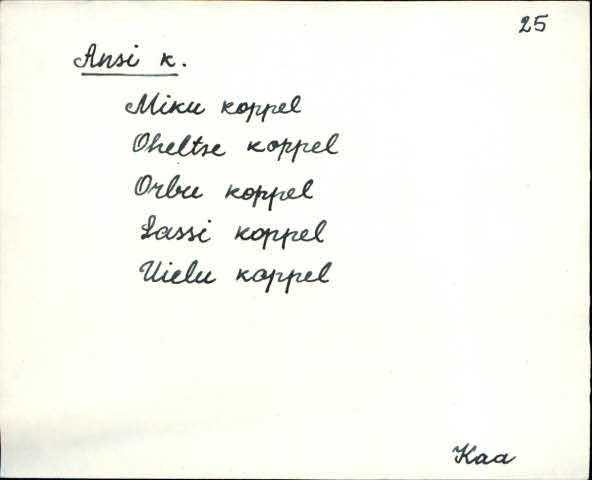 25
Ansi k.
Miku koppel
Oheltse koppel
Orbu koppel
Sassi koppel
Uielu koppel
Kaa